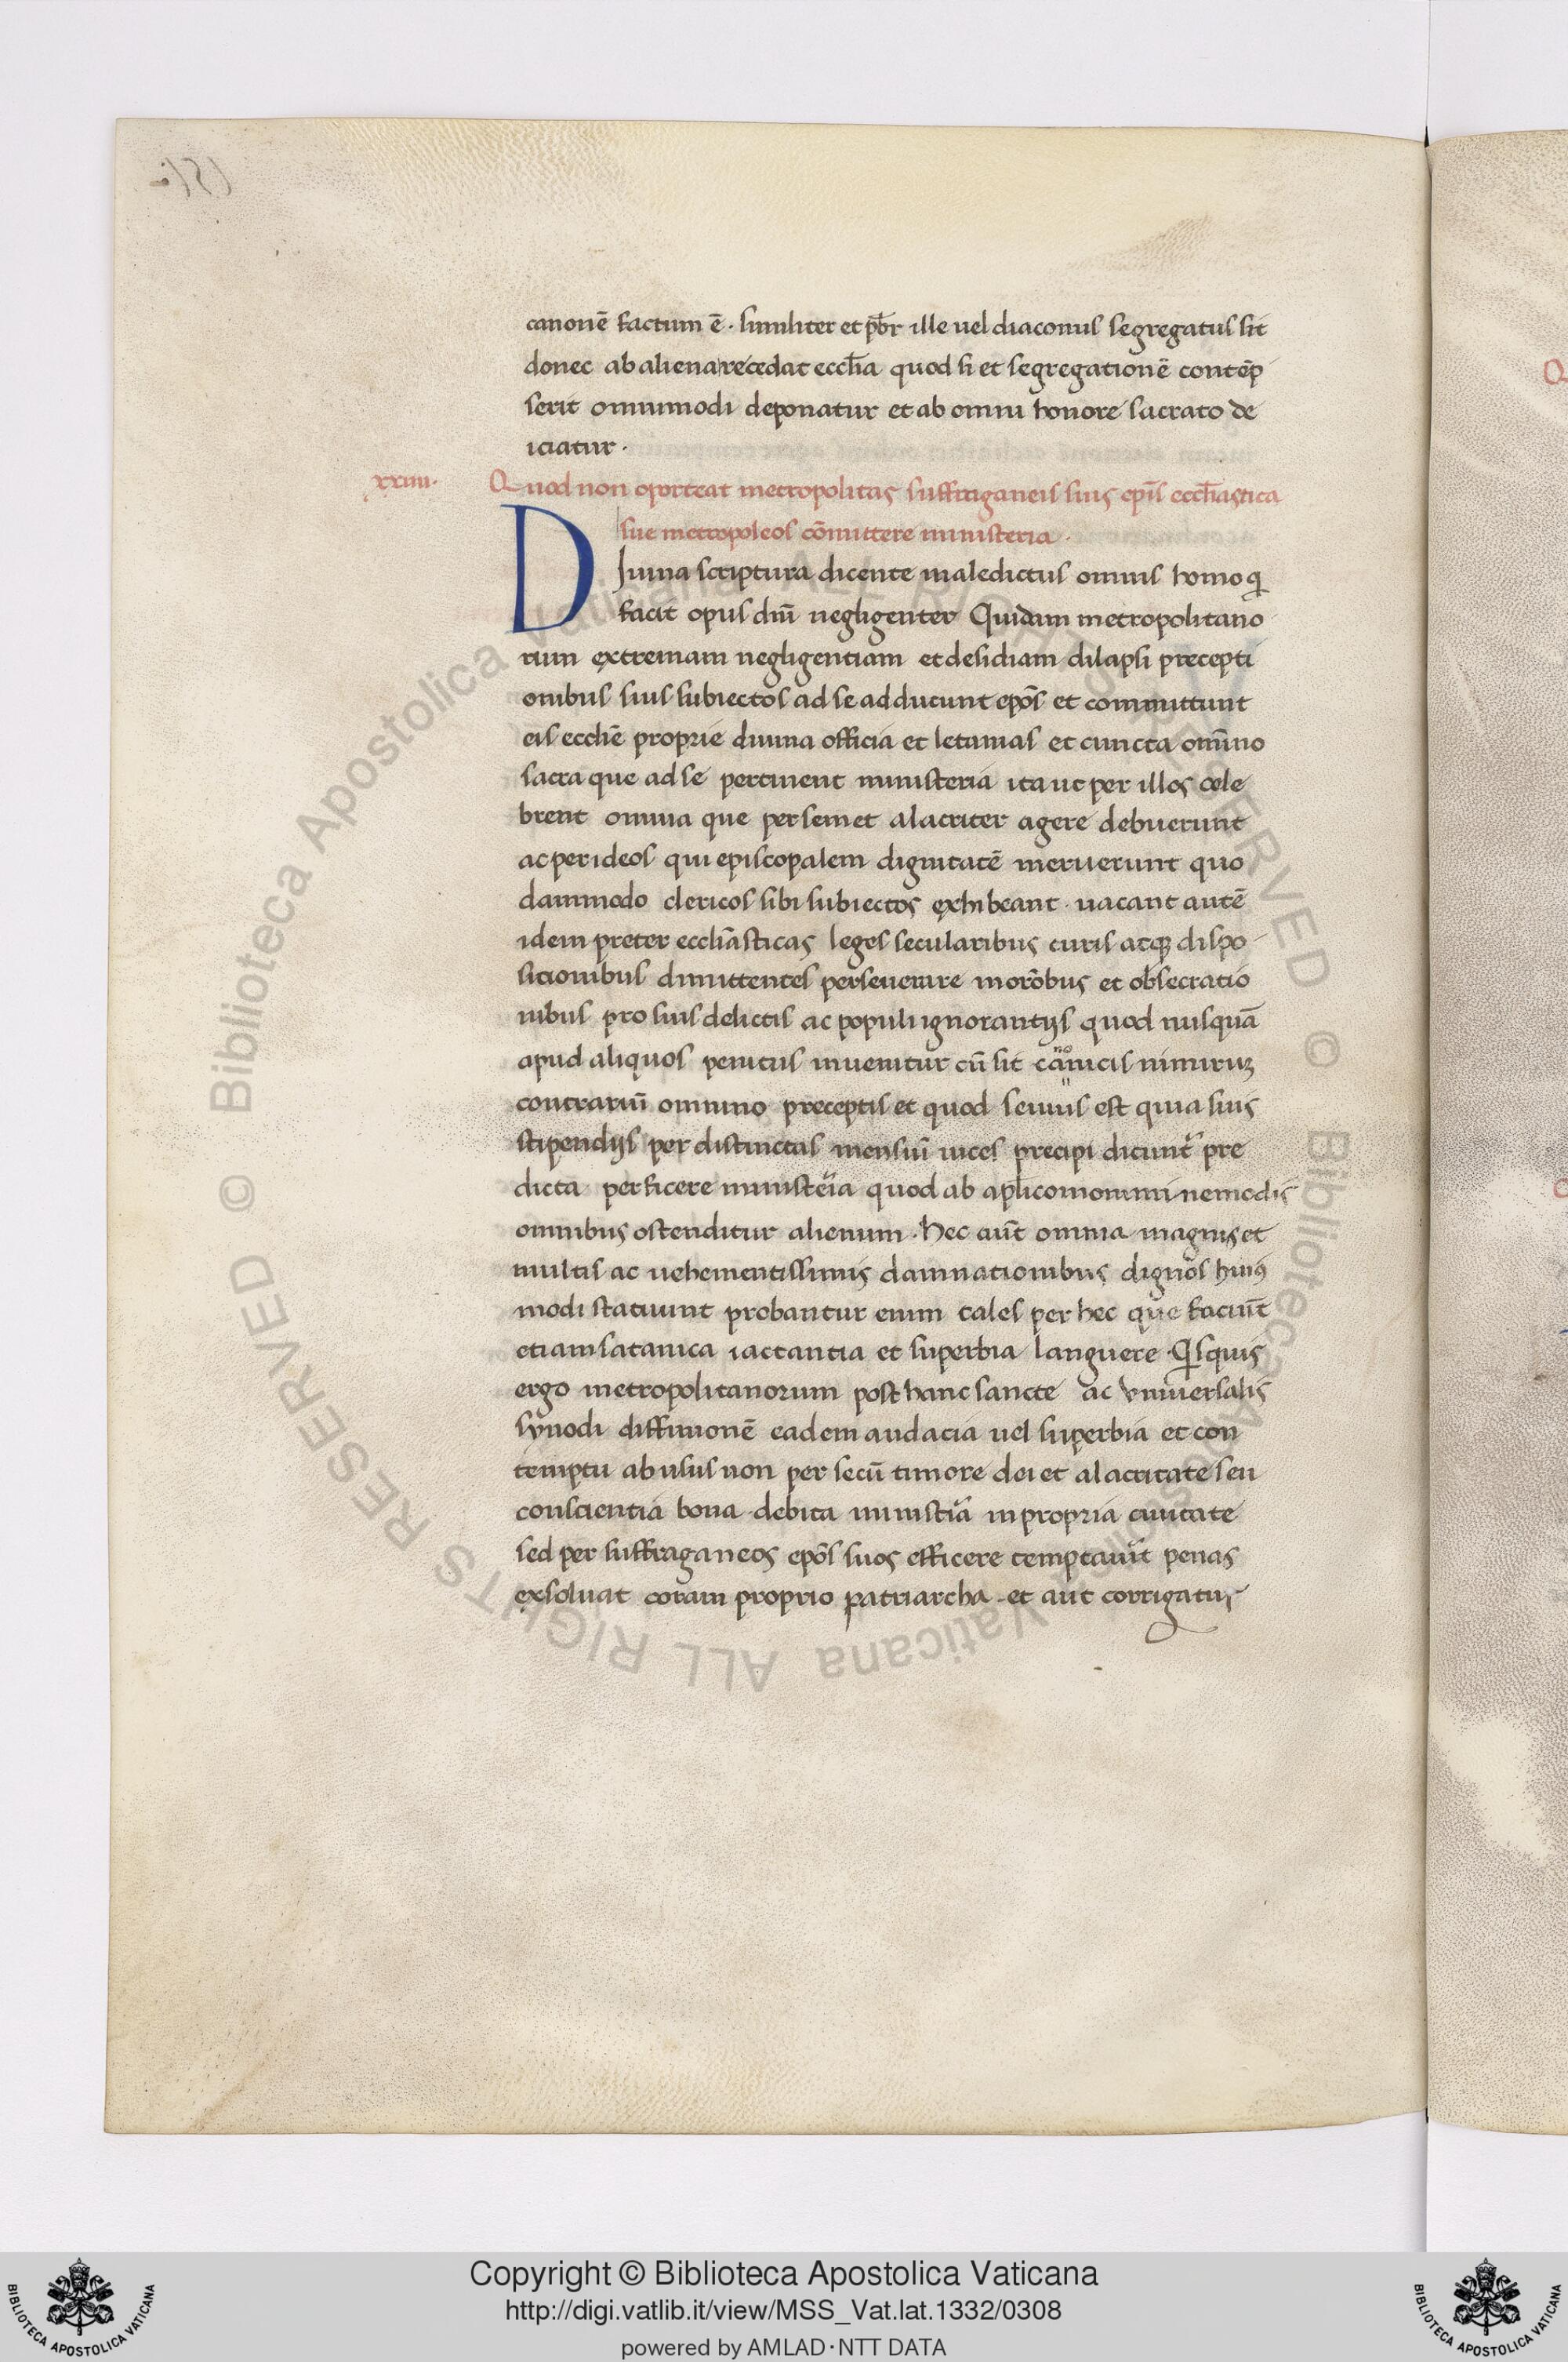 canonē factum ē. similiter et p̄br ille uel diaconus segregatus sit
donec ab aliena recedat eccl̄ia quod si et segregationē contēp
serit omnimodi deponatur et ab omni honore sacrato de
iciatur.
xxiiii. Quod non oporteat metropolitas suffraganeis suis ep̄is eccl̄iastica
sue metropoleos cōmittere ministeria.
Diuina scriptura dicente maledictus omnis homo q̄
facit opus diū negligenter Quidam metropolitano
rum extremam negligentiam et desidiam dilapsi precepti
onibus suis subiectos ad se adducunt ep̄os et committunt
eis ecclīe proprie diuina officia et letanias et cuncta om̄ino
sacra que ad se pertinent ministeria ita ut per illos cele
brent omnia que per semet alacriter agere debuerunt
ac per id eos qui episcopalem dignitatē meruerunt quo
dammodo clericos sibi subiectos exhibeant. uacant autē
idem preter eccliāsticas leges secularibus curis atq; dispo
sitionibus dimittentes perseuerare in orōibus et obsecratio
nibus pro suis delictis ac populi ignorantijs quod nusquā
apud aliquos penitus inuenitur cū sit nimiruȝ
contrariū omnino preceptis et quod seuius est quia suis
stipendijs per distinctas mensiū uices precipi dicunt᷑ pre
dicta perficere ministeria quod ab ap̄lico modis
omnibus ostenditur alienum. Hec aūt omnia magnis et
multis ac uehementissimis damnationibus dignos huiꝰ
modi statuunt probantur enim tales per hec que faciūt
etiam satanica iactantia et superbia languere. Qīsquis
ergo metropolitanorum post hanc sancte ac vniuersalis
synodi diffinionē eadem audacia uel superbia et con
temptu abusus non per secū timore dei et alacritate seu
conscientia bona debita minist̄ia in propria ciuitate
sed per suffraganeos ep̄os suos efficere temptaūit penas
exsoluat coram proprio patriarcha. et aut corrigatur
Copyright © Biblioteca Apostolica Vaticana
http://digi.vatlib.it/view/MSS_Vat.lat.1332/0308
powered by AMLAD·NTT DATA
BIBLIOTECA APOSTOLICA VATICANA
BIBLIOTECA APOSTOLICA VATICANA
© Biblioteca Apostolica Vaticana ALL RIGHTS RESERVED © Biblioteca Apostolica Vaticana ALL RIGHTS RESERVED